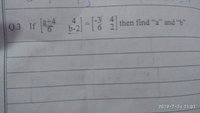 Q.3 If [a-4 4 6 b-2] = [-3 4 6 2] then find "a" and "b"
2019-7-24 23:01